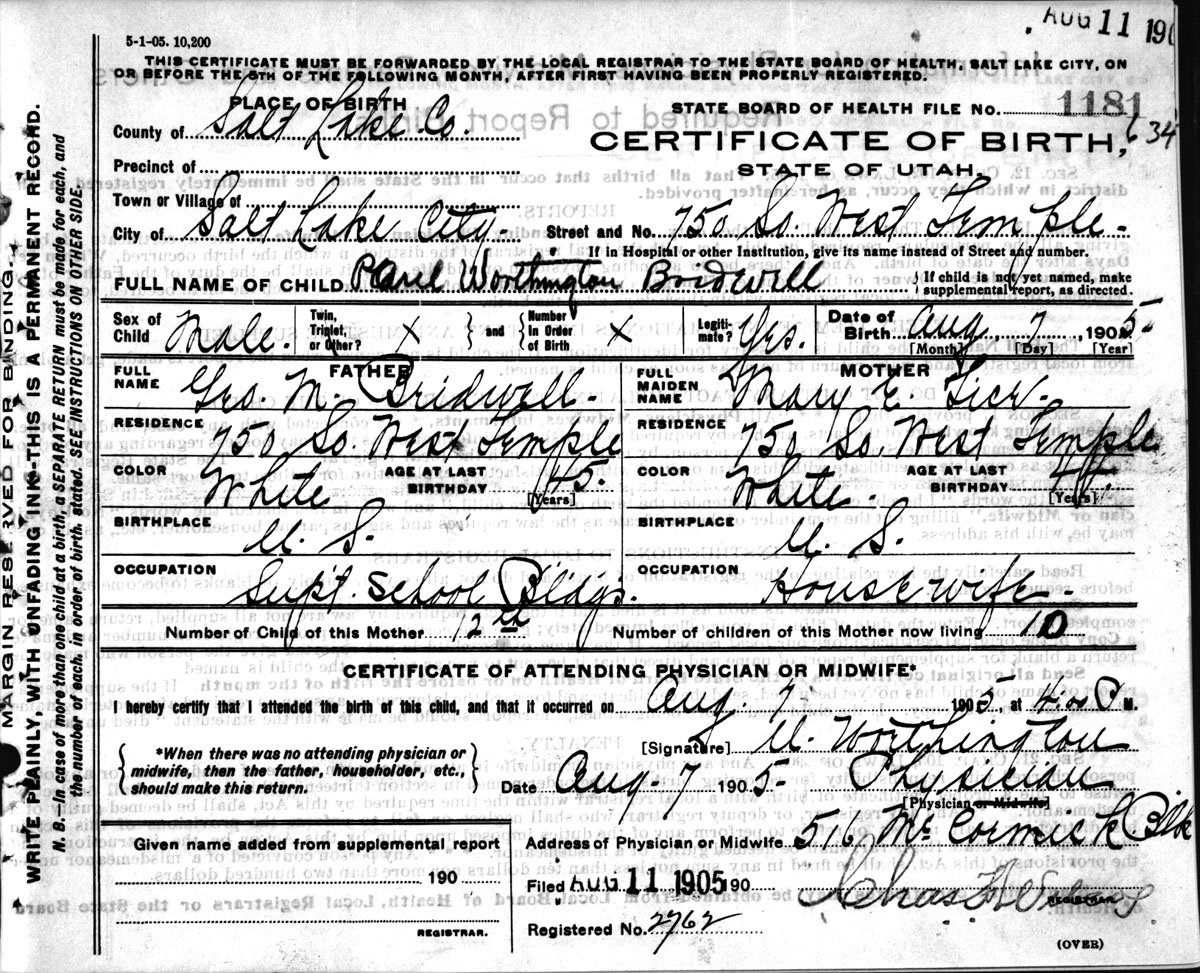 AUG 11 190
5-1-05. 10,200
THIS CERTIFICATE MUST BE FORWARDED BY THE LOCAL REGISTRAR TO THE STATE BOARD OF HEALTH, SALT LAKE CITY, ON
OR BEFORE THE 5TH OF THE FOLLOWING MONTH, AFTER FIRST HAVING BEEN PROPERLY REGISTERED.
PLACE OF BIRTH
County of Salt Lake Co.
Precinct of
Town or Village of
City of Salt Lake City-
STATE BOARD OF HEALTH FILE No. 1181
634
CERTIFICATE OF BIRTH,
STATE OF UTAH.
Street and No. 750 So. West Temple-
If in Hospital or other Institution, give its name instead of Street and number.
FULL NAME OF CHILD Worthington Bridwell
If child is not yet named, make supplemental report, as directed.
Sex of Child Male
Twin, Triplet, or Other? X and Number in Order of Birth X
Legitimate? Yes.
Date of Birth Aug. 7 1905
[Month] [Day] [Year]
FATHER
FULL NAME Geo. M. Bridwell-
RESIDENCE 750 So. West Temple
COLOR White AGE AT LAST BIRTHDAY 45. [Years]
BIRTHPLACE U. S.
OCCUPATION Supt. School Bldgs.
MOTHER
FULL MAIDEN NAME Mary E. Fick-
RESIDENCE 750 So. West Temple
COLOR White. AGE AT LAST BIRTHDAY [Years]
BIRTHPLACE U. S.
OCCUPATION Housewife-
Number of Child of this Mother 12th Number of children of this Mother now living 10
CERTIFICATE OF ATTENDING PHYSICIAN OR MIDWIFE*
I hereby certify that I attended the birth of this child, and that it occurred on Aug. 7 1905, at P M.
*When there was no attending physician or midwife, then the father, householder, etc., should make this return.
[Signature] Worthington
Date Aug-7 1905- Physician
[Physician or Midwife]
Address of Physician or Midwife 516 McCormick Blk
Given name added from supplemental report
190
REGISTRAR.
Filed AUG 11 1905 90
REGISTRAR
Registered No. 2762
(OVER)
MARGIN RESERVED FOR BINDING.
WRITE PLAINLY, WITH UNFADING INK-THIS IS A PERMANENT RECORD.
N. B.-In case of more than one child at a birth, a SEPARATE RETURN must be made for each, and
the number of each, in order of birth, stated. SEE INSTRUCTIONS ON OTHER SIDE.